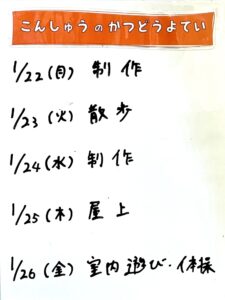 こんしゅうのかつどうよてい
1/22(月) 制作
1/23(火) 散歩
1/24(水) 制作
1/25(木) 屋上
1/26(金) 室内遊び・体操